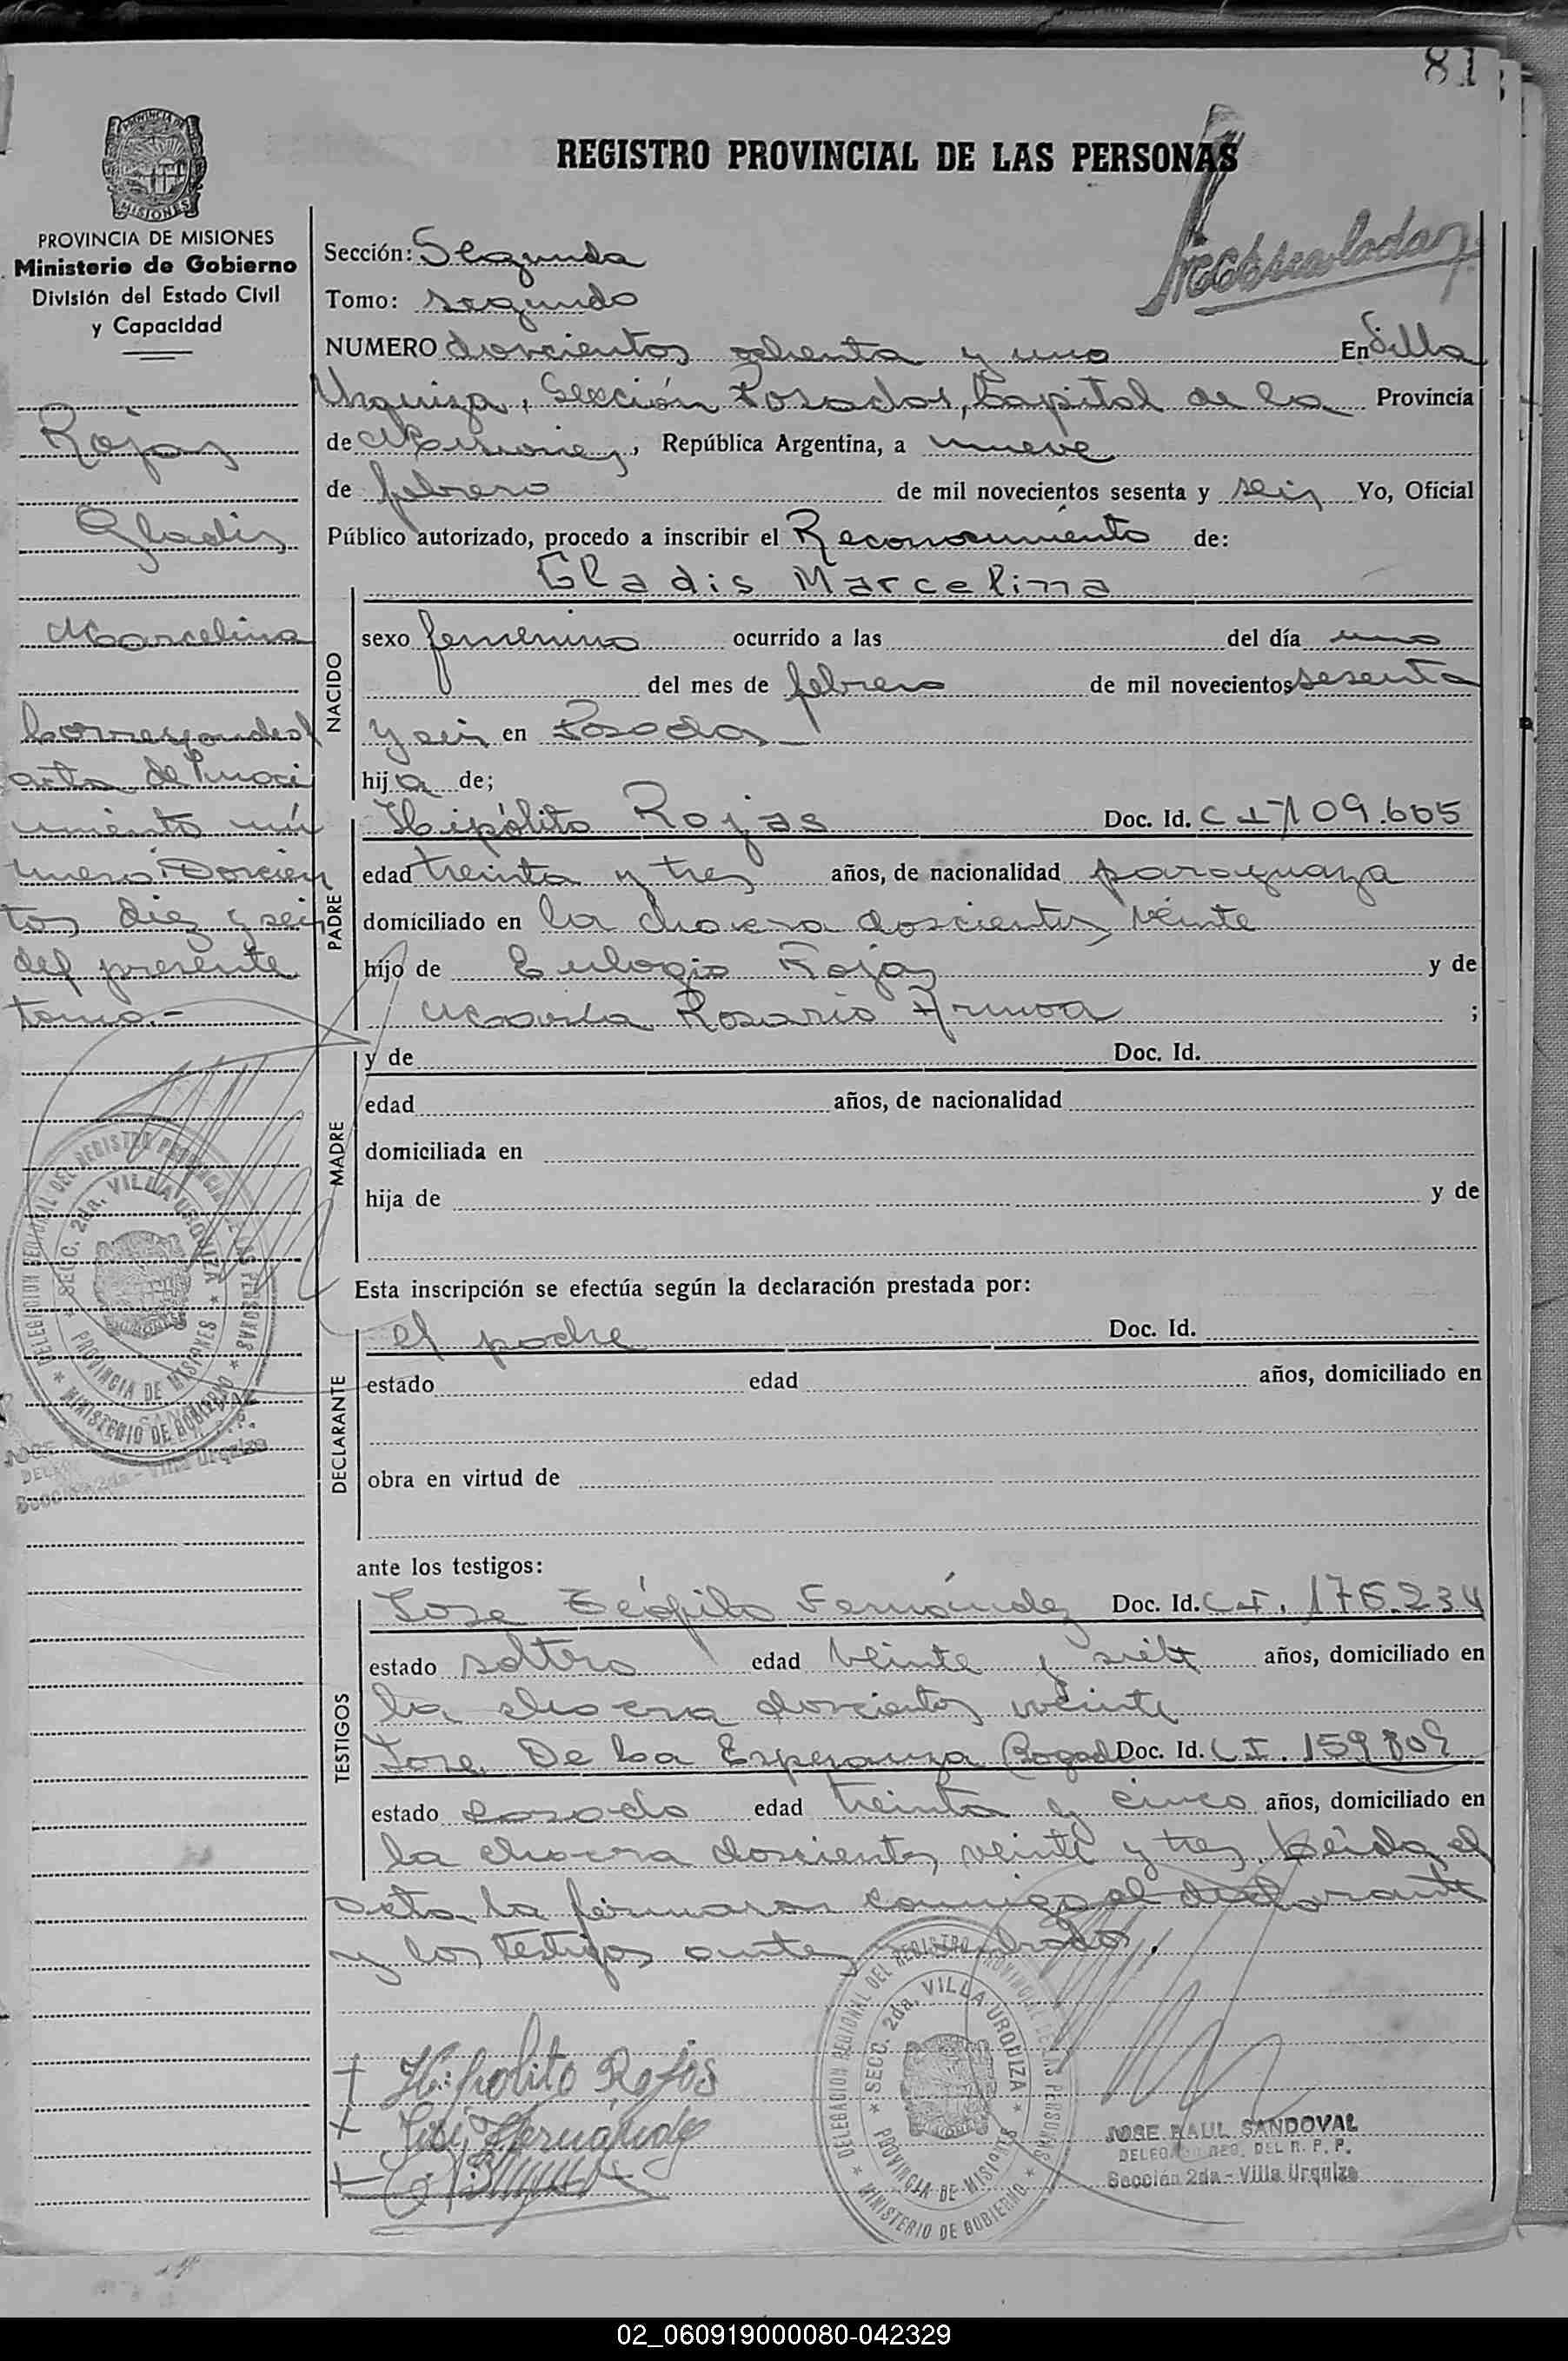 81
REGISTRO PROVINCIAL DE LAS PERSONAS
PROVINCIA DE MISIONES
Ministerio de Gobierno
División del Estado Civil
y Capacidad
Rojas
Gladis
Marcelina
Corresponde al
acta de naci
miento nú
mero Doscien
tos diez y seis
del presente
tomo.-
Sección: Segunda
Tomo: segundo
NUMERO doscientos ochenta y uno En Villa
Urquiza, Sección Posadas, Capital de la Provincia
de Misiones, República Argentina, a nueve
de febrero de mil novecientos sesenta y seis Yo, Oficial
Público autorizado, procedo a inscribir el Reconocimiento de:
Gladis Marcelina
NACIDO
sexo femenino ocurrido a las del día uno
del mes de febrero de mil novecientos sesenta
y seis en Posadas
hija de;
PADRE
Hipólito Rojas Doc. Id. C I 109.605
edad treinta y tres años, de nacionalidad paraguaya
domiciliado en la chacra doscientos veinte
hijo de Eulogio Rojas y de
María Rosario ;
MADRE
y de Doc. Id.
edad años, de nacionalidad
domiciliada en
hija de y de
Esta inscripción se efectúa según la declaración prestada por:
DECLARANTE
el padre Doc. Id.
estado edad años, domiciliado en
obra en virtud de
ante los testigos:
TESTIGOS
Jose Teófilo Fernández Doc. Id. C I. 175.234
estado soltero edad veinte y siete años, domiciliado en
la chacra doscientos veinte
Jose De La Esperanza Bogado Doc. Id. C I. 159.809
estado casado edad treinta y cinco años, domiciliado en
la chacra doscientos veinte y tres Leida el
acta la firmaron conmigo el declarante
y los testigos antes nombrados.
Hipolito Rojas
José Fernández
DELEGACION REGIONAL DEL REGISTRO PROVINCIAL DE LAS PERSONAS
SECC. 2da. VILLA URQUIZA
PROVINCIA DE MISIONES
MINISTERIO DE GOBIERNO
JOSE RAUL SANDOVAL
DELEGADO REG. DEL R. P. P.
Sección 2da - Villa Urquiza
02_060919000080-042329